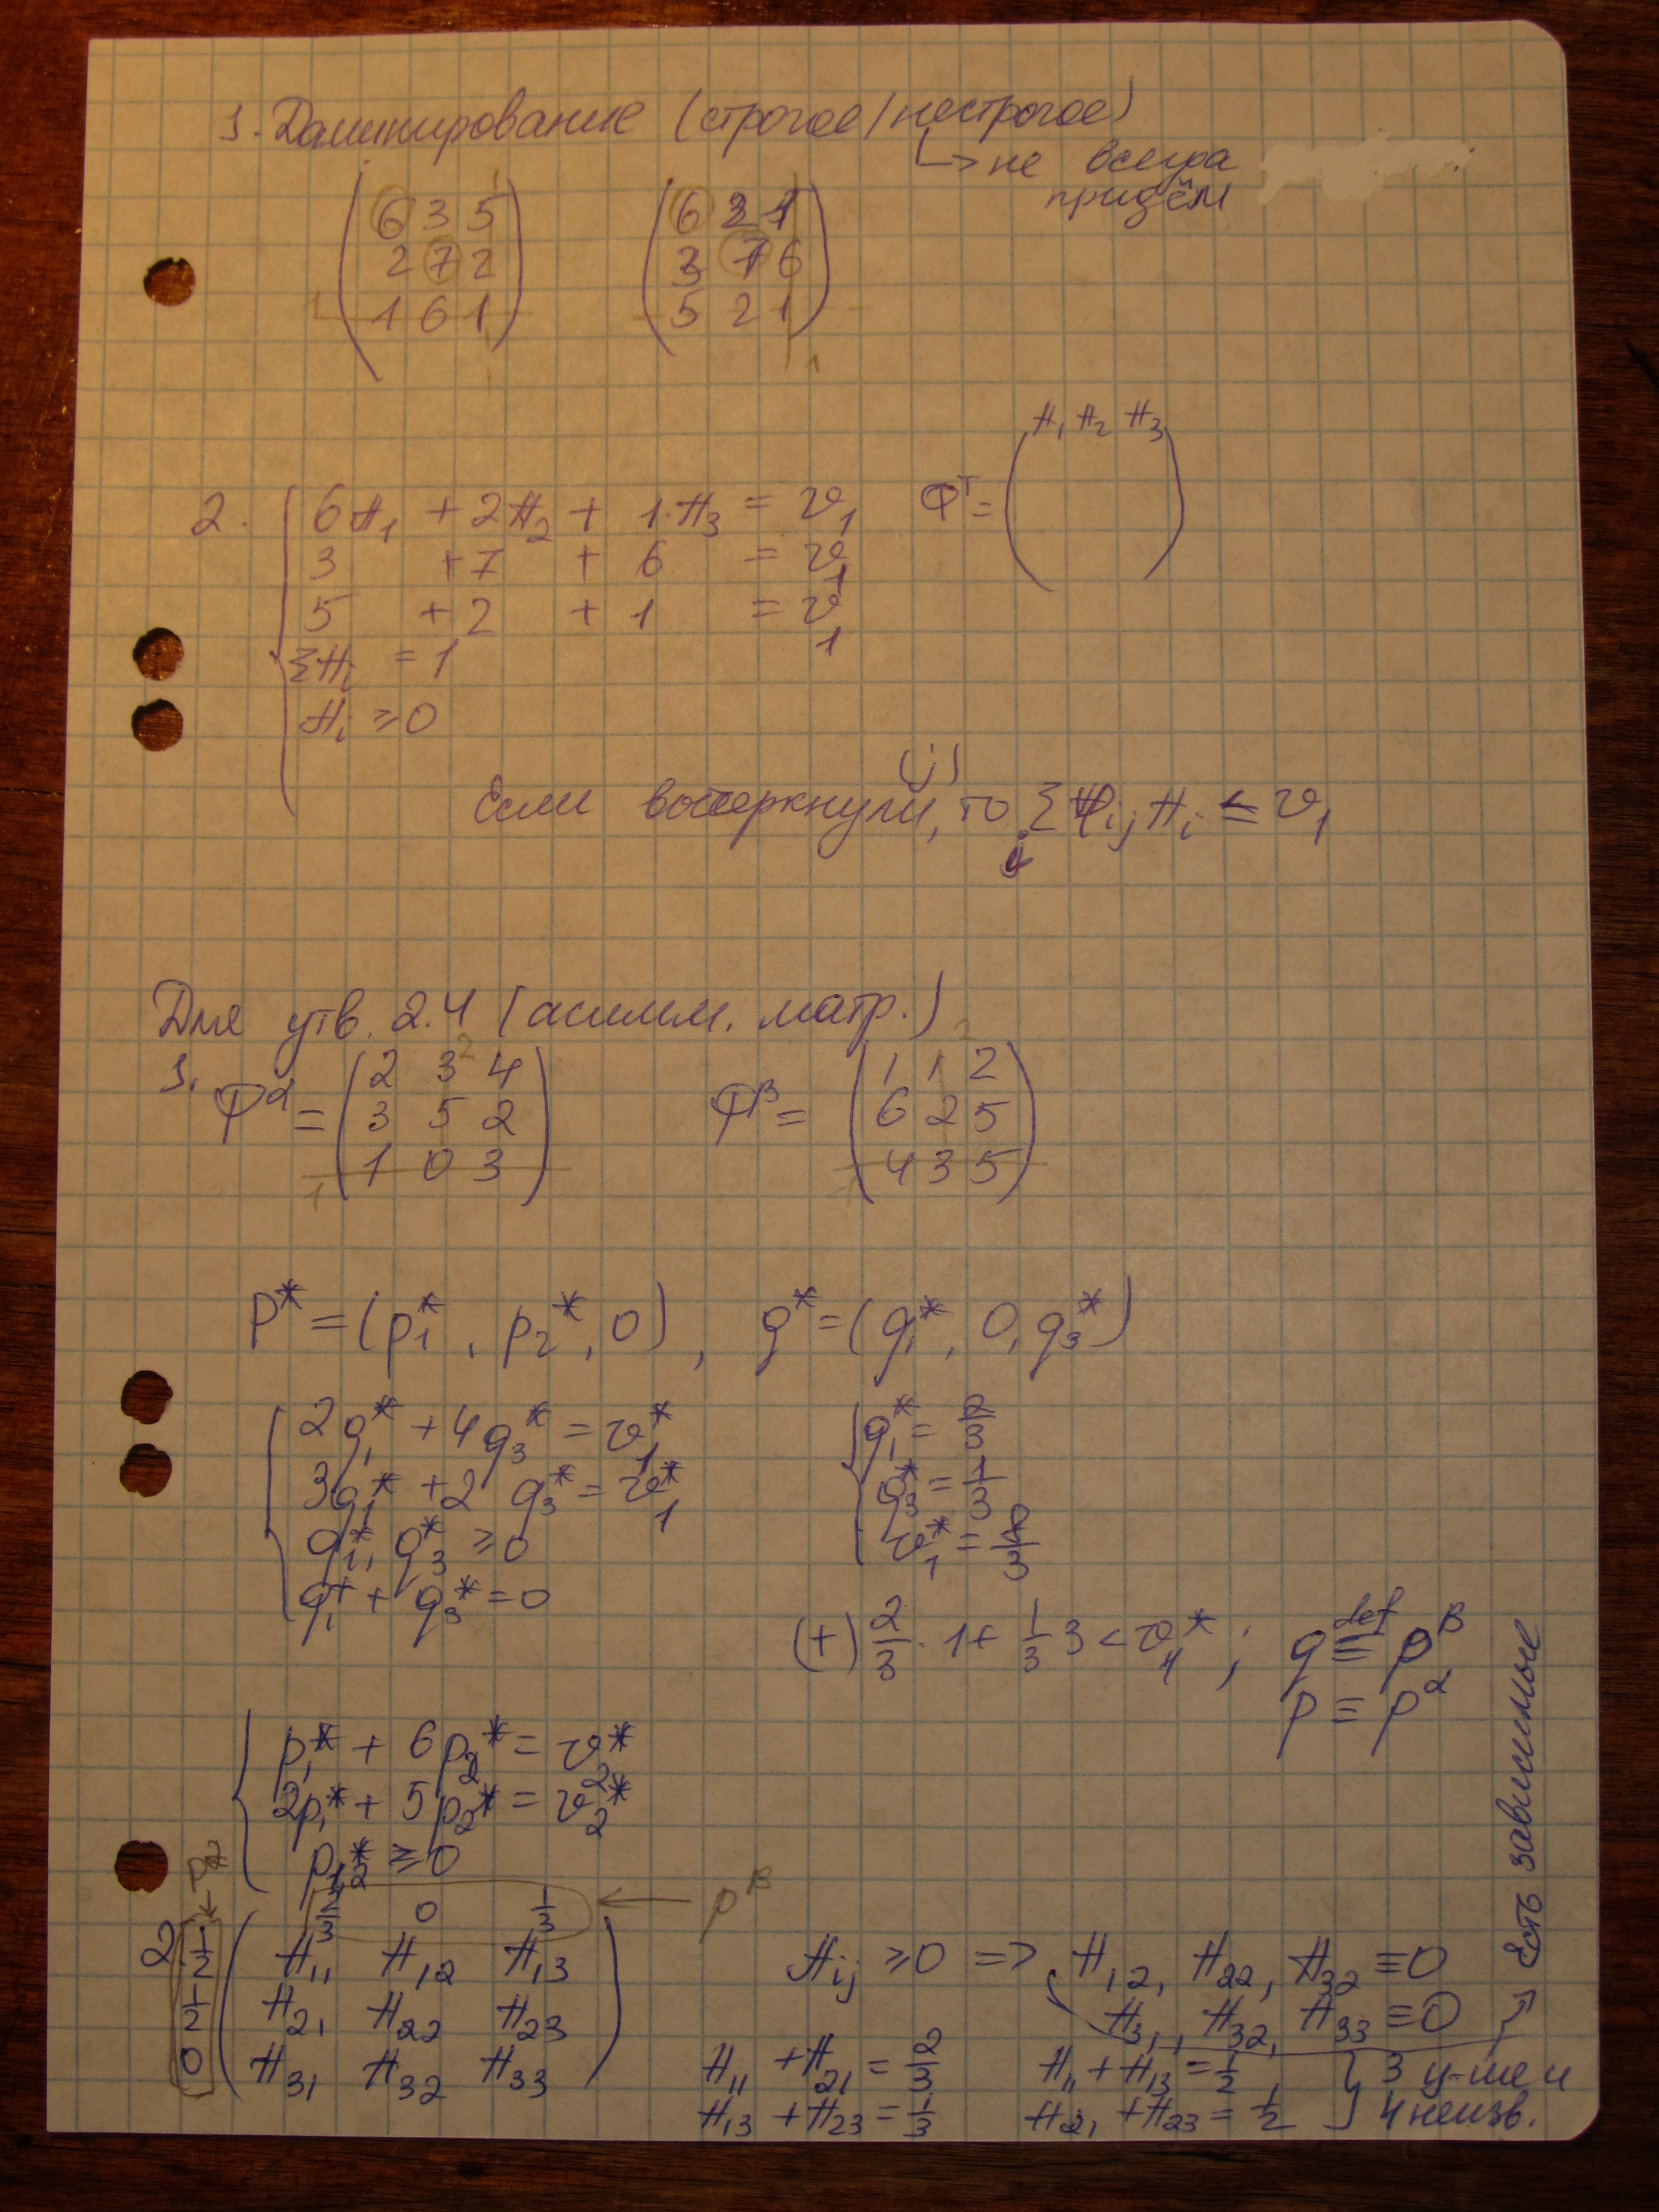 1. Доминирование (строгое/нестрогое)
↳ не всегда
придём
( 6 3 5
2 7 2
1 6 1 )
( 6 2 1
3 7 6
5 2 1 )
1
H₁ H₂ H₃
2. { 6H₁ + 2H₂ + 1·H₃ = v₁ Φᵀ = ( )
3 + 7 + 6 = v₁
5 + 2 + 1 = v₁
ΣHᵢ = 1
Hᵢ ≥ 0
(j)
Если вычеркнули, то Σ φᵢⱼ Hᵢ ≤ v₁
Для утв. 2.4 (асимм. матр.)
1. Φ^α = ( 2 3 4
3 5 2
1 0 3 )
Φ^β = ( 1 1 2
6 2 5
4 3 5 )
p* = (p₁*, p₂*, 0), q* = (q₁*, 0, q₃*)
{ 2q₁* + 4q₃* = v₁*
3q₁* + 2q₃* = v₁*
q₁*, q₃* ≥ 0
q₁* + q₃* = 0
{ q₁* = 2/3
q₃* = 1/3
v₁* = 8/3
(+) 2/3 · 1 + 1/3 3 < v₁* ; q ≡def p^β
p ≡ p^α
{ p₁* + 6p₂* = v₂*
2p₁* + 5p₂* = v₂*
p₁,₂* ≥ 0
p^α
2/3 0 1/3 ← p^β
2. 1/2 ( H₁₁ H₁₂ H₁₃
1/2 H₂₁ H₂₂ H₂₃
0 H₃₁ H₃₂ H₃₃ )
Hᵢⱼ ≥ 0 => H₁₂, H₂₂, H₃₂ ≡ 0
H₃₁, H₃₂, H₃₃ ≡ 0
→ Есть зависимые
H₁₁ + H₂₁ = 2/3 H₁₁ + H₁₃ = 1/2 } 3 ур-ия и
H₁₃ + H₂₃ = 1/3 H₂₁ + H₂₃ = 1/2 4 неизв.